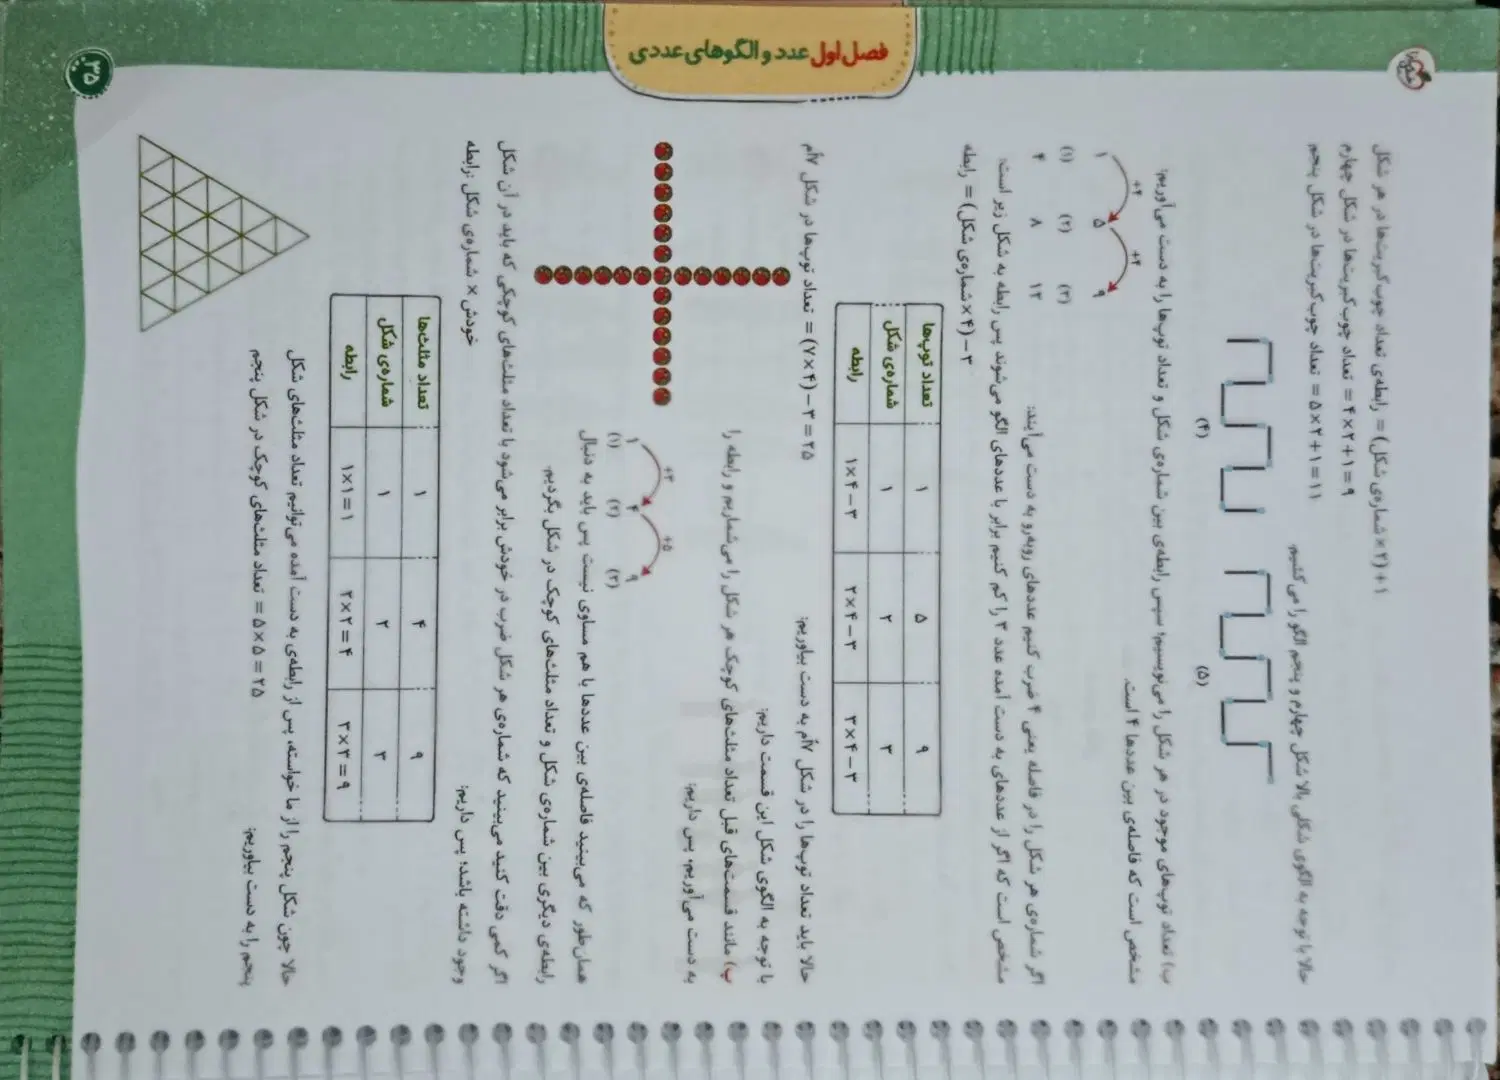 فصل اول عدد و الگوهای عددی
۳۵
رابطه‌ی تعداد چوب‌کبریت‌ها در هر شکل = (شماره‌ی شکل × ۲) + ۱
تعداد چوب‌کبریت‌ها در شکل چهارم = ۴ × ۲ + ۱ = ۹
تعداد چوب‌کبریت‌ها در شکل پنجم = ۵ × ۲ + ۱ = ۱۱
حالا با توجه به الگوی شکلی بالا شکل چهارم و پنجم الگو را می‌کشیم.
(۴) (۵)
ب) تعداد توپ‌های موجود در هر شکل را می‌نویسیم؛ سپس رابطه‌ی بین شماره‌ی شکل و تعداد توپ‌ها را به دست می‌آوریم:
مشخص است که فاصله‌ی بین عددها ۴ است.
+۴ +۴
۱ ۵ ۹
(۱) (۲) (۳)
۴ ۸ ۱۲
اگر شماره‌ی هر شکل را در فاصله یعنی ۴ ضرب کنیم عددهای روبه‌رو به دست می‌آیند:
مشخص است که اگر از عددهای به دست آمده عدد ۳ را کم کنیم برابر با عددهای الگو می‌شوند پس رابطه به شکل زیر است:
رابطه = (شماره‌ی شکل × ۴) − ۳
تعداد توپ‌ها ۱ ۵ ۹
شماره‌ی شکل ۱ ۲ ۳
رابطه ۱×۴−۳ ۲×۴−۳ ۳×۴−۳
حالا باید تعداد توپ‌ها را در شکل ۷اُم به دست بیاوریم:
تعداد توپ‌ها در شکل ۷اُم = (۷×۴) − ۳ = ۲۵
با توجه به الگوی شکل این قسمت داریم:
پ) مانند قسمت‌های قبل تعداد مثلث‌های کوچک هر شکل را می‌شماریم و رابطه را
به دست می‌آوریم، پس داریم:
+۳ +۵
۱ ۴ ۹
(۱) (۲) (۳)
همان‌طور که می‌بینید فاصله‌ی بین عددها با هم مساوی نیست پس باید به دنبال
رابطه‌ی دیگری بین شماره‌ی شکل و تعداد مثلث‌های کوچک در شکل بگردیم.
اگر کمی دقت کنید می‌بینید که شماره‌ی هر شکل ضرب در خودش برابر می‌شود با تعداد مثلث‌های کوچکی که باید در آن شکل
وجود داشته باشد؛ پس داریم:
خودش × شماره‌ی شکل :رابطه
تعداد مثلث‌ها ۱ ۴ ۹
شماره‌ی شکل ۱ ۲ ۳
رابطه ۱×۱=۱ ۲×۲=۴ ۳×۳=۹
حالا چون شکل پنجم را از ما خواسته، پس از رابطه‌ی به دست آمده می‌توانیم تعداد مثلث‌های شکل
پنجم را به دست بیاوریم:
تعداد مثلث‌های کوچک در شکل پنجم = ۵×۵ = ۲۵